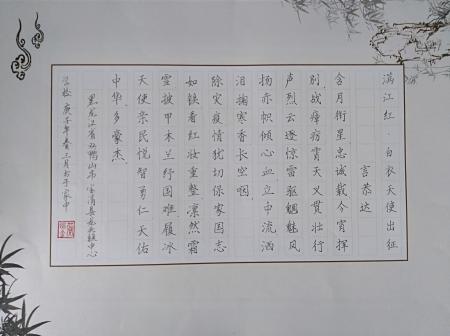 满江红·白衣天使出征
言恭达
含月衔星忠诚载今宵挥
别战瘴疠霄天义贯壮行
声烈云遮惊雷驱魍魅风
扬赤帜倾心血立中流洒
泪掬寒香长空咽
除灾疫情犹切保家国志
如铁看红妆重整凛然霜
雪披甲木兰纾国难履冰
天使崇民悦智勇仁天佑
中华多豪杰
黑龙江省双鸭山市宝清县
庚子年春三月书于家中